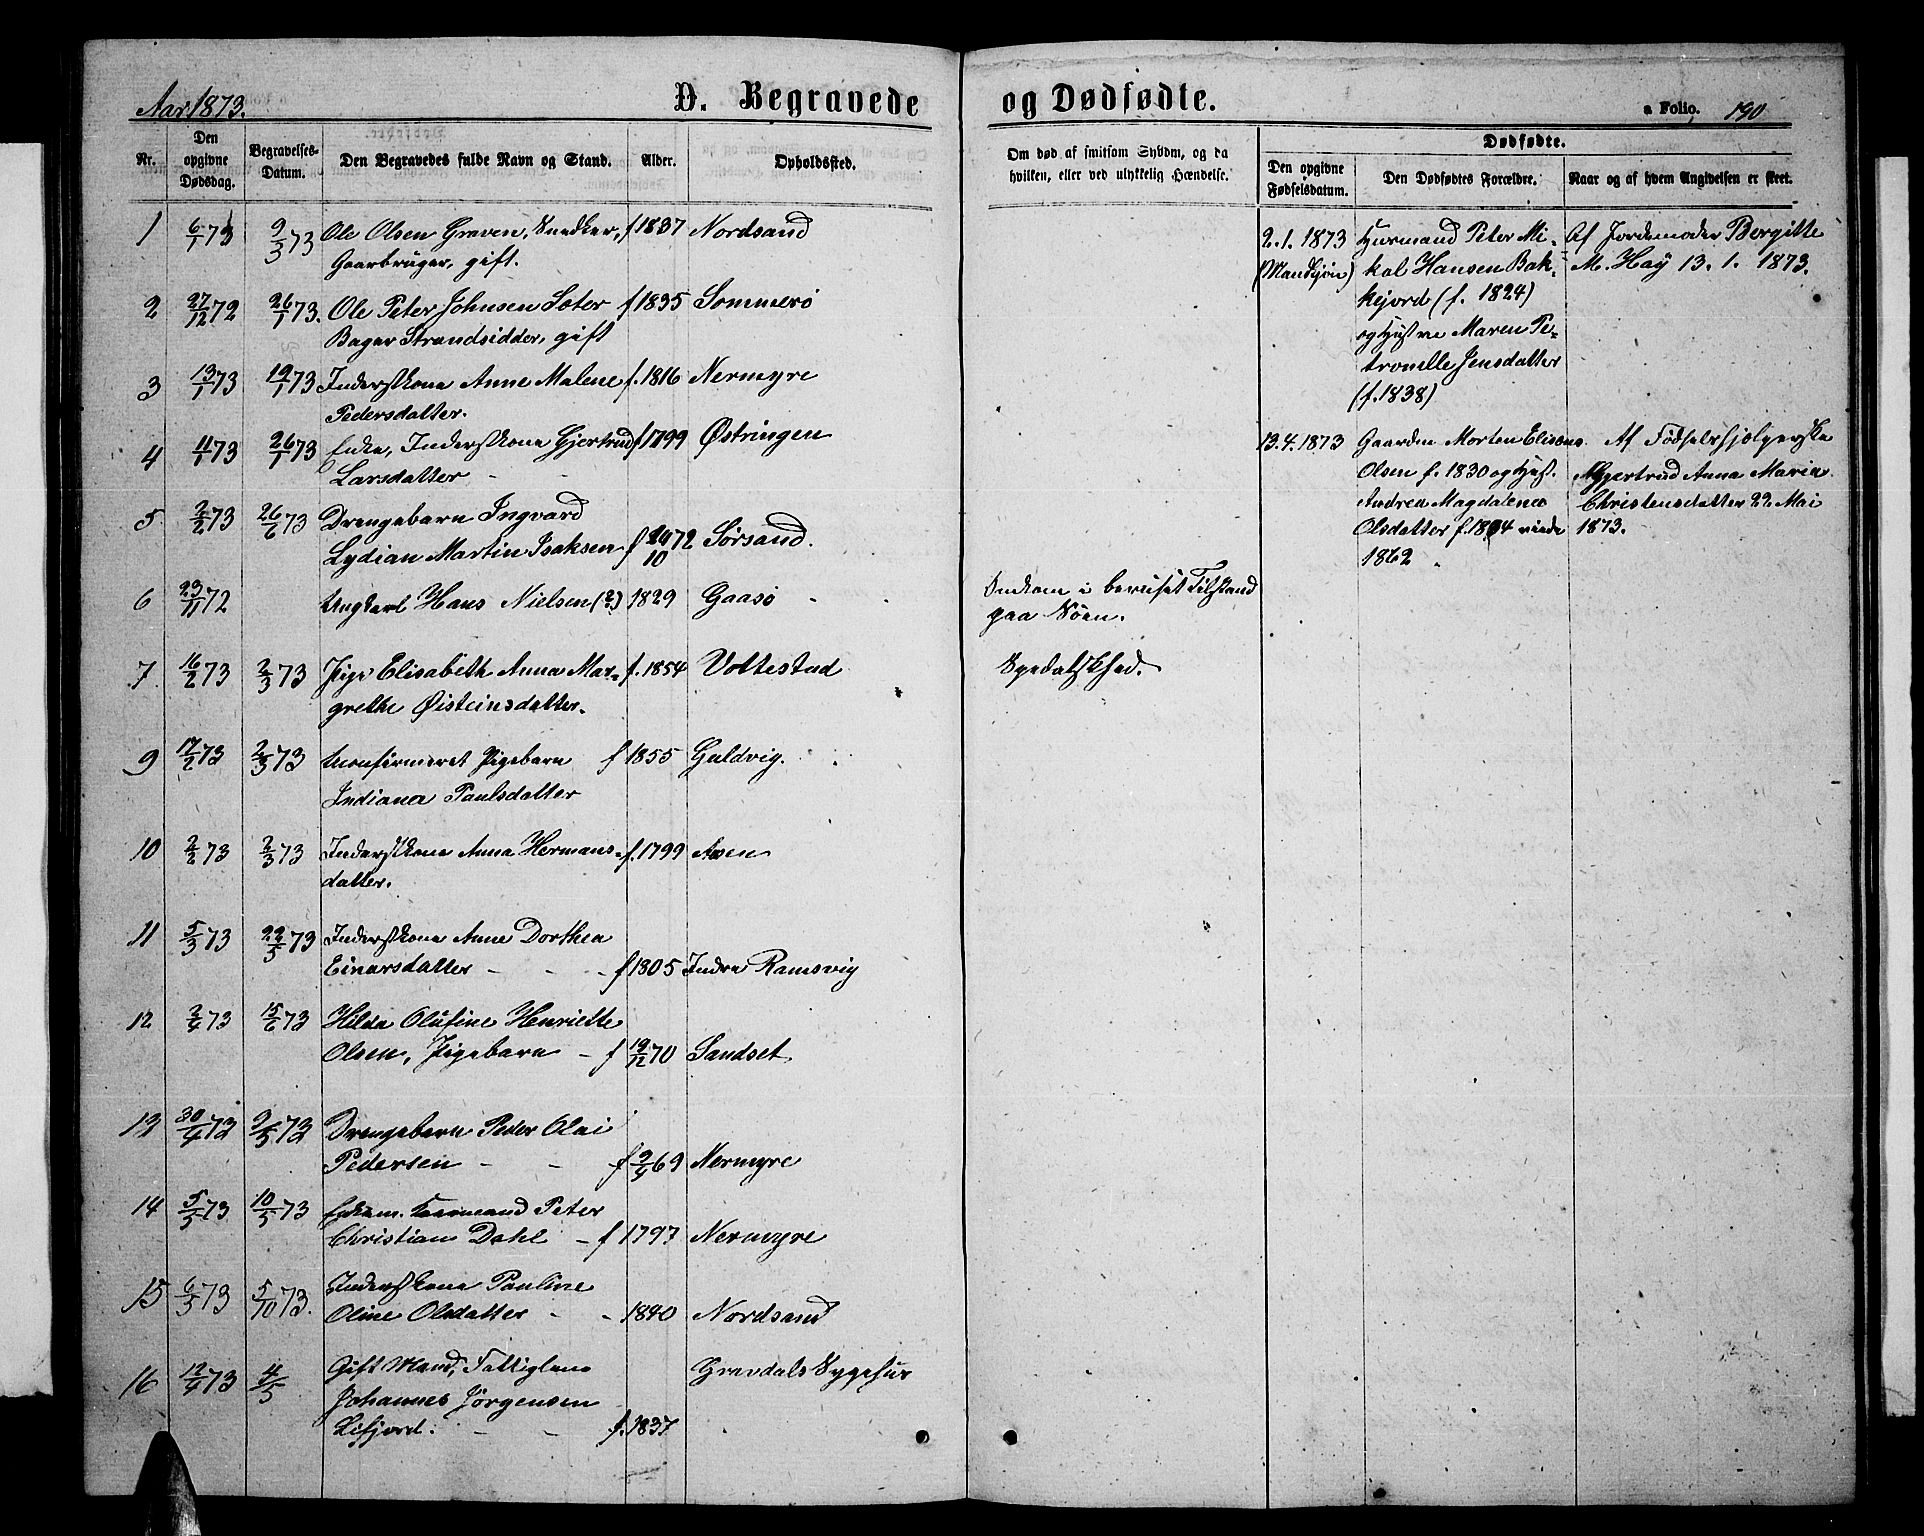 Aar 1873.
D. Begravede og Dødfødte.
a Folio. 190
Nr.
Den opgivne Dødsdag.
Begravelses-Datum.
Den Begravedes fulde Navn og Stand.
Alder.
Opholdssted.
Om død af smitsom Sygdom, og da hvilken, eller ved ulykkelig Hændelse.
Dødfødte.
Den opgivne Fødselsdatum.
Den Dødfødtes Forældre.
Naar og af hvem Angivelsen er skeet.
1 6/1 73 9/3 73 Ole Olsen Graven, Snedker, f 1837 Nordsand
Gaardbruger, gift.
2 27/12 72 26/1 73. Ole Peter Johnsen Sæter f 1835 Sommerö
Bager Strandsidder, gift
3 13/1 73 19/1 73 Inderstkone Anne Malene f. 1816 Nermyre
Pedersdatter.
4 11/1 73 26/1 73 Enke, Inderstkone Gjertrud f 1799 Østringen
Larsdatter - -
5 2/2 73 26/6 73 Drengebarn Ingvard
Lydian Martin Isaksen f 29/10 72 Sørsand.
6 23/11 72 Ungkarl Hans Nielsen (?) 1829 Gaasö - Omkom i beruset Tilstand
paa Söen.
7. 16/2 73 2/3 73 Pige Elisabeth Anna Mar- f. 1854 Vottestad Spedalskhed.
grethe Øisteinsdatter.
9 17/2 73 2/3 73 Ukonfirmeret Pigebarn f 1855 Guldvig.
Indiana Paulsdatter
10 2/2 73 2/3 73 Inderstkone Anna Hermans- f. 1799 Aasen
datter.
11 5/3 73 22/5 73 Inderstkone Anne Dorthea
Einarsdatter - - - f 1805 Indre Ramsvig
12 2/4 73 15/6 73 Hilda Olufine Henriette
Olsen, Pigebarn - f 19/12 70 Sandset
13 30/4 73 9/5 73 Drengebarn Peder Olai
Pedersen - - f 9/4 69 Nermyre
14 5/5 73 10/5 73 Enkem. Kaarmand Peter
Christian Dahl - f 1797 Nermyre
15 6/5 73 5/10 73. Inderstkone Pauline
Oline Olsdatter - - 1840 Nordsand
16 12/4 73 4/5 Gift Mand, Fattiglem Gravdals Sygehus
Johannes Jørgensen
Lifjord. - - f. 1837
2. 1. 1873 Husmand Peter Mi- Af Jordemoder Bergitte
(Mandkjøn) kal Hansen Bak- M. Høÿ 13. 1. 1873.
kejord (f. 1824)
og Hustru Maren Pe-
tronelle Jensdatter
(f. 1838)
13. 4. 1873 Gaardm Morten Eliseus Af Födselshjælperske
Olsen f. 1830 og Hust. Anna Maria
Andrea Magdalena Christensdatter 22 Mai
Olsdatter f. 1834 viede 1873.
1862